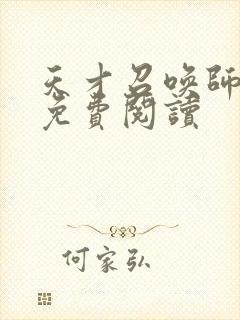 天才召喚師
免費閱讀
何家弘